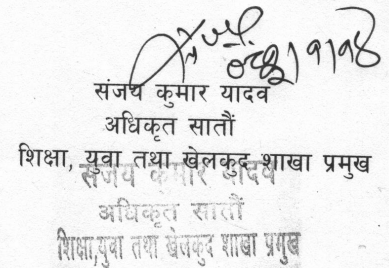 संजय कुमार यादव
अधिकृत सातौं
शिक्षा, युवा तथा खेलकुद शाखा प्रमुख
संजय कुमार यादव
अधिकृत सातौं
शिक्षा,युवा तथा खेलकुद शाखा प्रमुख